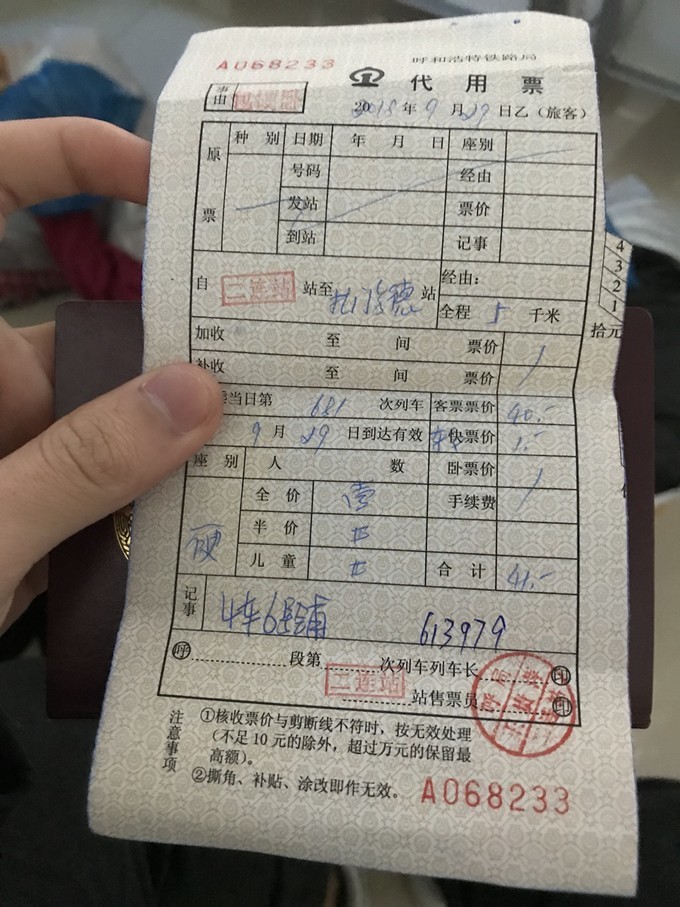 A068233
呼和浩特铁路局
代用票
事由
2018年9月29日乙（旅客）
原票
种别 日期 年 月 日 座别
号码 经由
发站 票价
到站 记事
自 二连站 站至 扎门乌德 站 经由：
全程 5 千米
加收 至 间 票价
补收 至 间 票价
当日第 681 次列车 客票票价 40.-
9月29日到达有效 快票价 1.-
座别 人数 卧票价
全价 壹 手续费
硬 半价
儿童 合计 41.-
记事 4车6号铺 613979
呼 段第 次列车列车长 印
二连站 站售票员 印
注意事项
①核收票价与剪断线不符时，按无效处理
（不足10元的除外，超过万元的保留最
高额）。
②撕角、补贴、涂改即作无效。
A068233
4
3
2
1
拾元